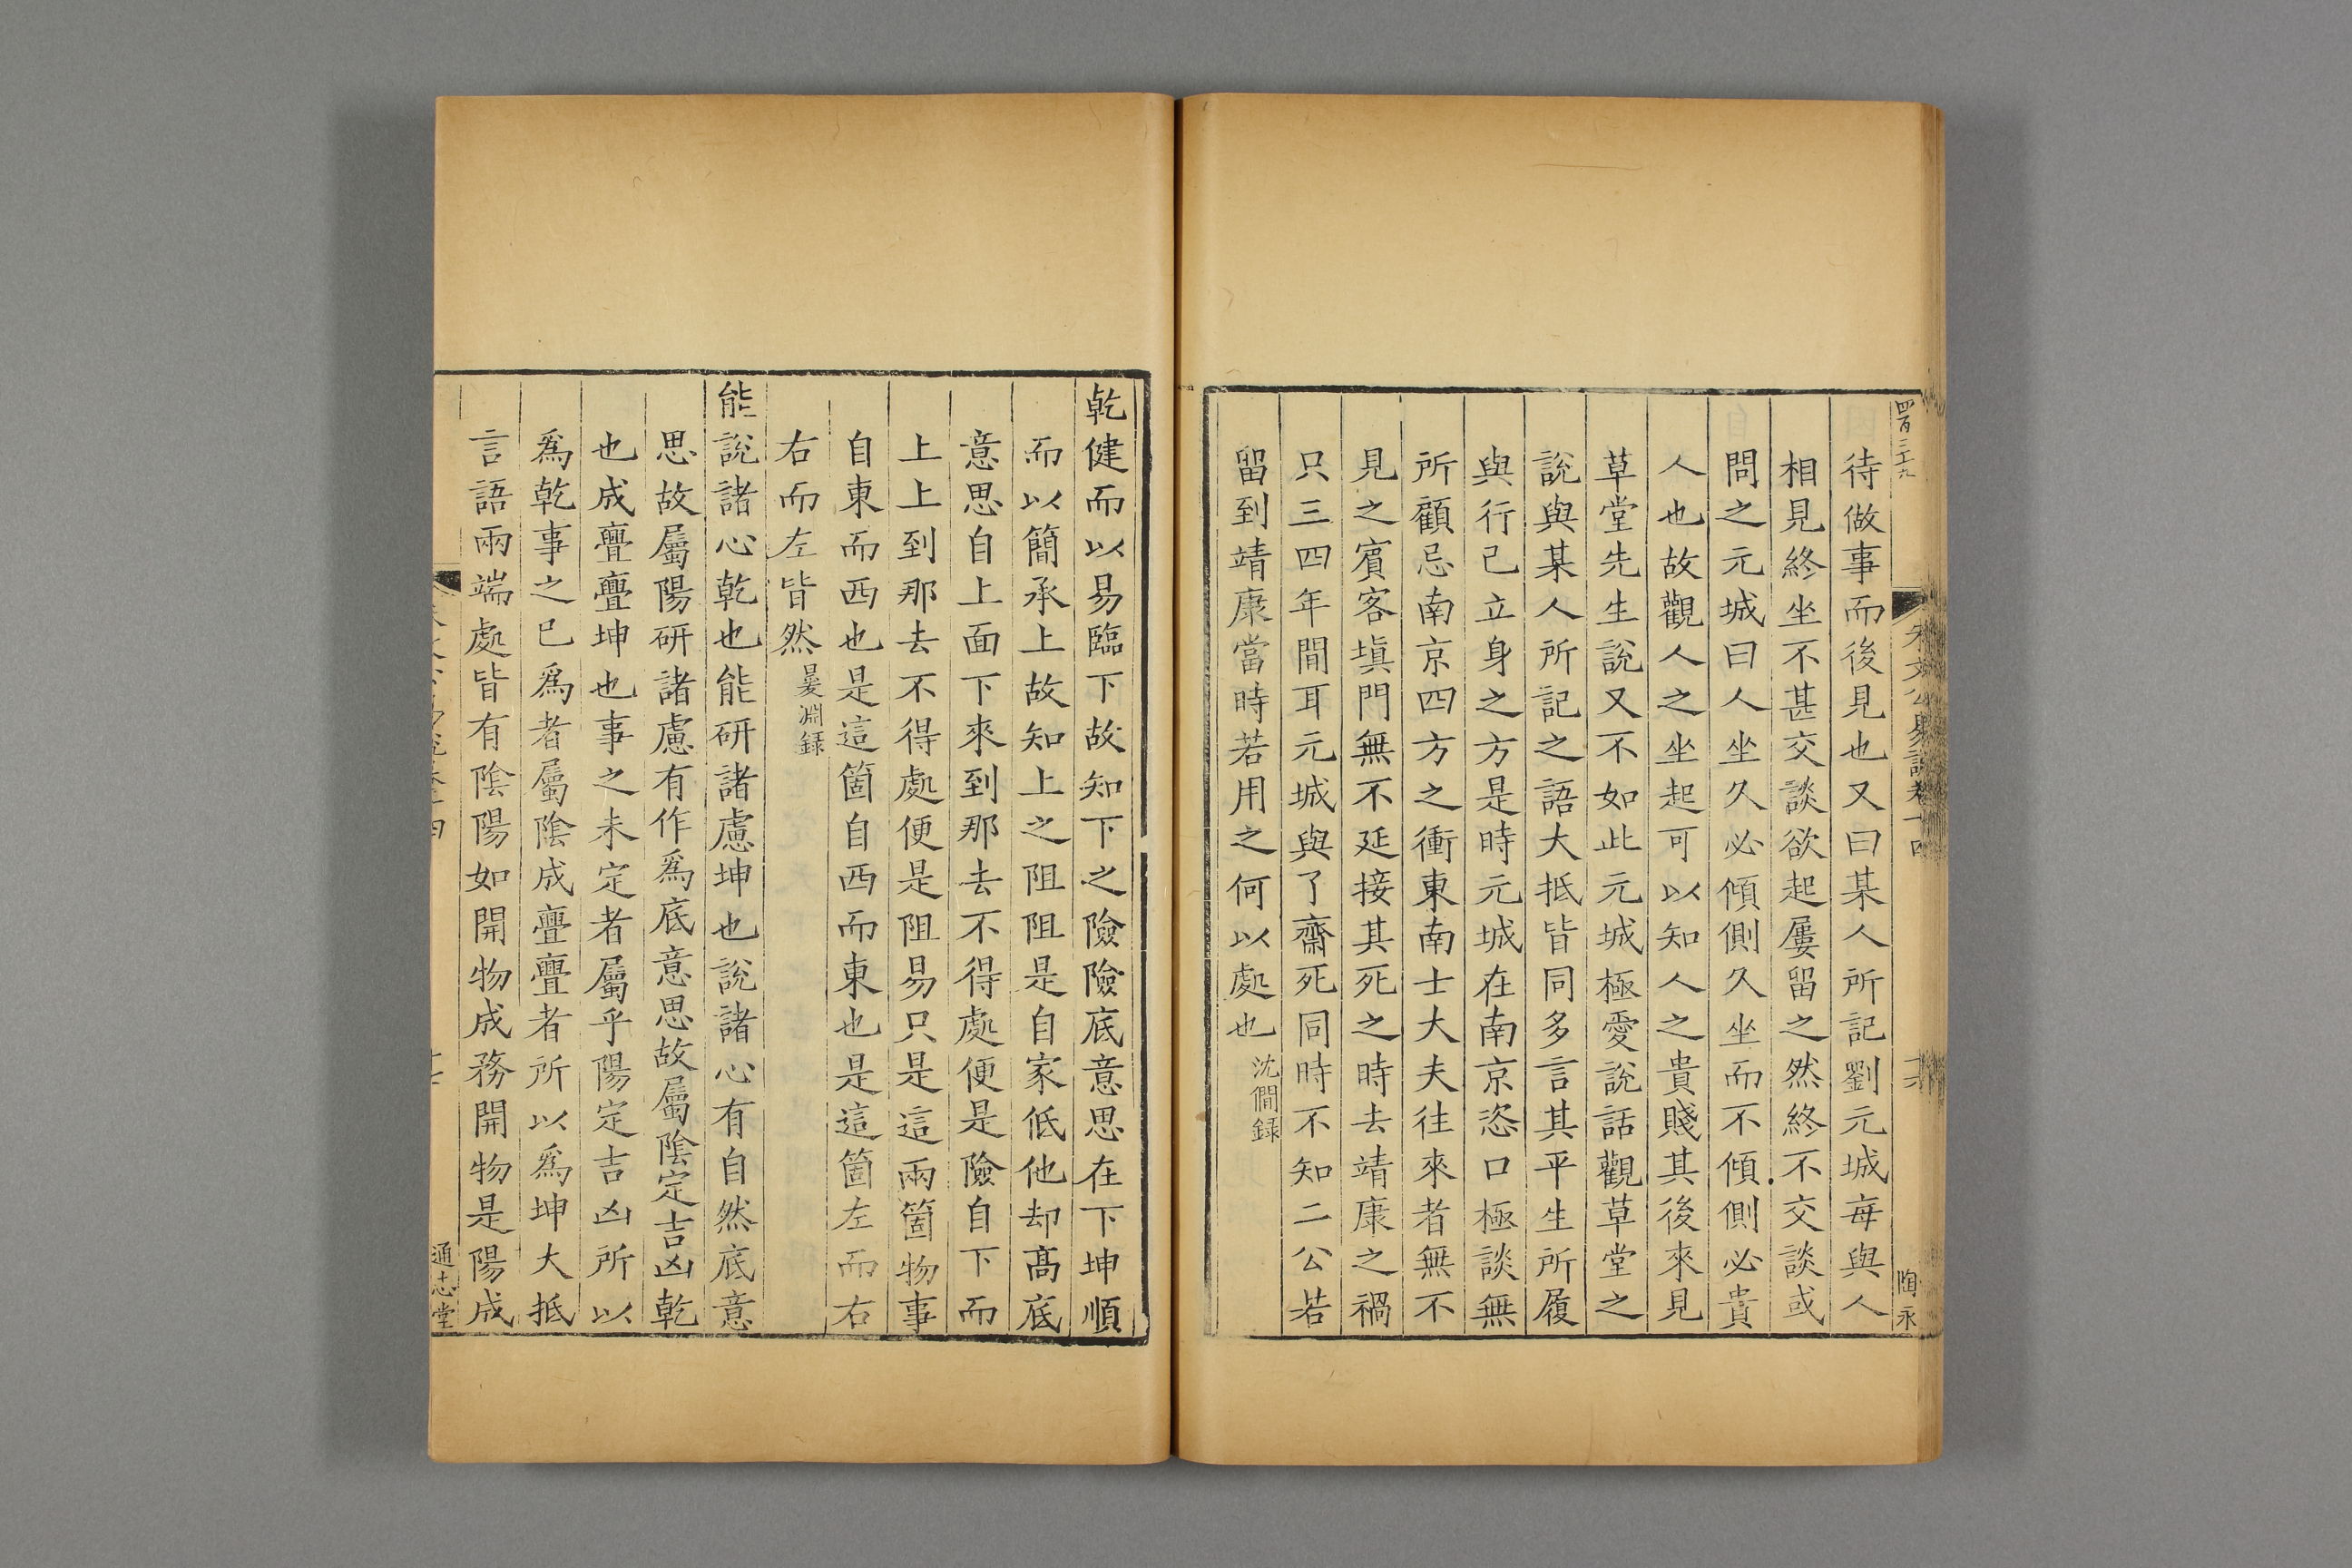 四百三十九
朱文公易說卷十四
十六
陶永
待做事而後見也又曰某人所記劉元城每與人
相見終坐不甚交談欲起屢留之然終不交談或
問之元城曰人坐久必傾側久坐而不傾側必貴
人也故觀人之坐起可以知人之貴賤其後來見
草堂先生說又不如此元城極愛說話觀草堂之
說與某人所記之語大抵皆同多言其平生所履
與行己立身之方是時元城在南京恣口極談無
所顧忌南京四方之衝東南士大夫往來者無不
見之賓客塡門無不延接其死之時去靖康之禍
只三四年間耳元城與了齋死同時不知二公若
留到靖康當時若用之何以處也沈僩録
乾健而以易臨下故知下之險險底意思在下坤順
而以簡承上故知上之阻阻是自家低他却髙底
意思自上面下來到那去不得處便是險自下而
上上到那去不得處便是阻易只是這兩箇物事
自東而西也是這箇自西而東也是這箇左而右
右而左皆然㬊淵録
能說諸心乾也能研諸慮坤也說諸心有自然底意
思故屬陽研諸慮有作爲底意思故屬陰定吉凶乾
也成亹亹坤也事之未定者屬乎陽定吉凶所以
爲乾事之已爲者屬陰成亹亹者所以爲坤大抵
言語兩端處皆有陰陽如開物成務開物是陽成
通志堂